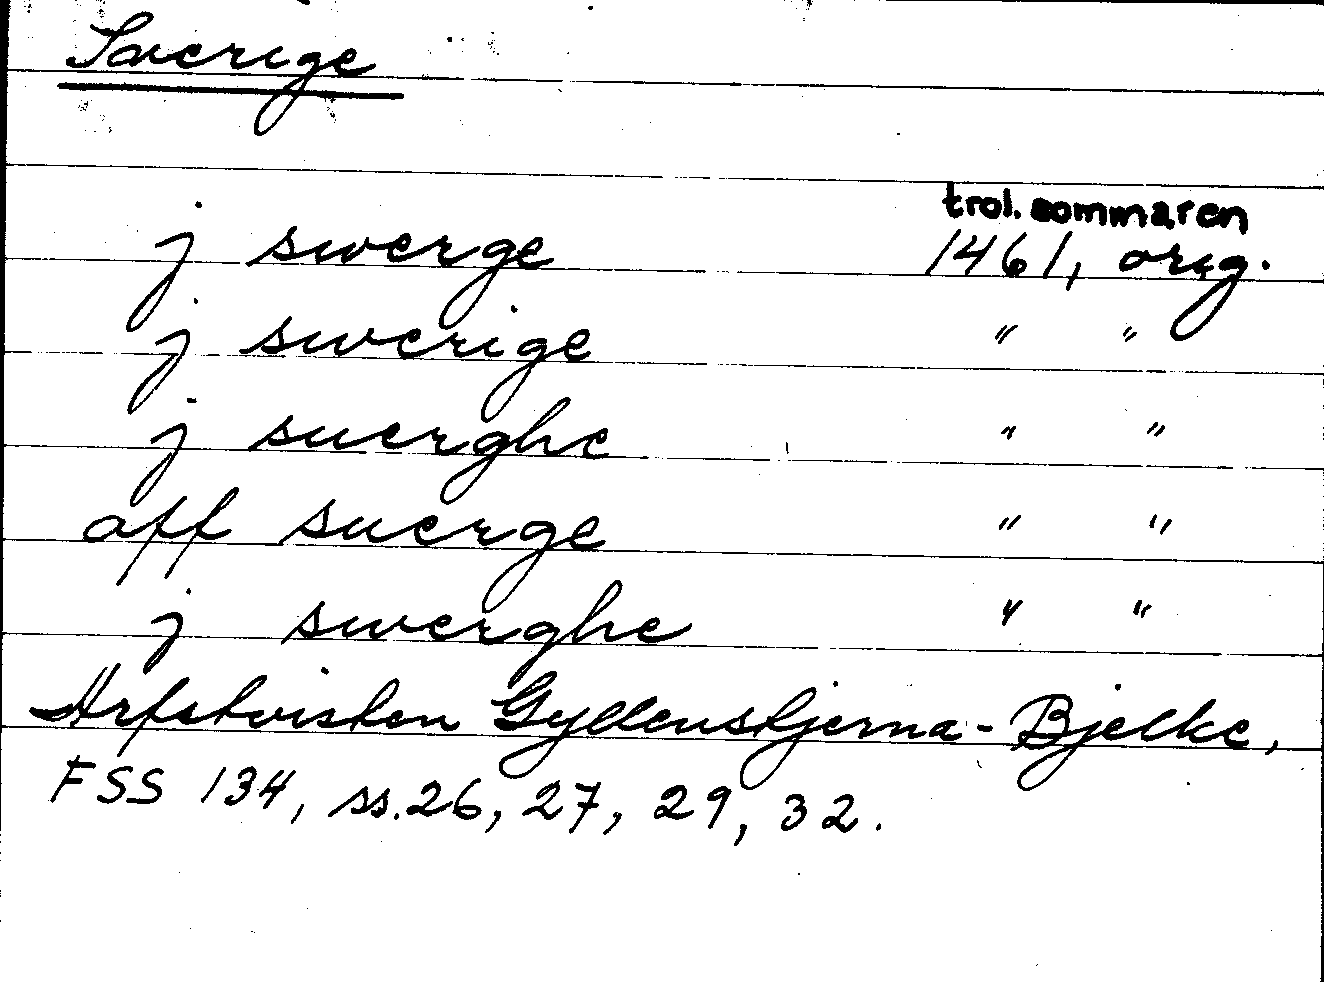 Sverige
trol. sommaren
j swerge 1461, orig.
j swerige " "
j suerghe " "
aff suerge " "
j swerghe " "
Arfstvisten Gyllenstjerna-Bjelke,
FSS 134, ss. 26, 27, 29, 32.